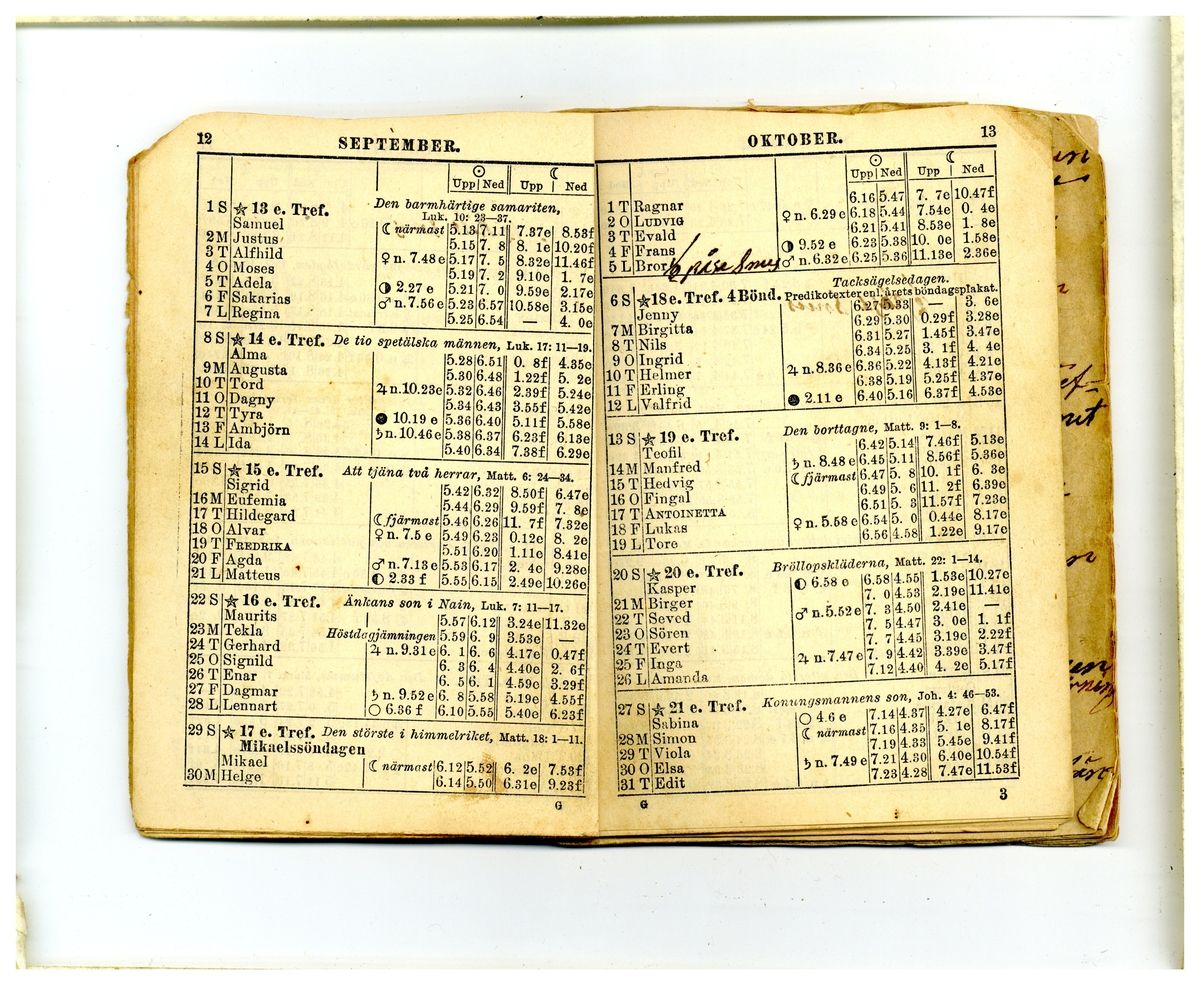 12 SEPTEMBER.
☉ ☾
Upp Ned Upp Ned
1 S ★ 13 e. Tref. Den barmhärtige samariten,
Luk. 10: 23—37.
Samuel ☾ närmast 5.13 7.11 7.37e 8.53f
2 M Justus 5.15 7. 8 8. 1e 10.20f
3 T Alfhild ♀ n. 7.48 e 5.17 7. 5 8.32e 11.46f
4 O Moses 5.19 7. 2 9.10e 1. 7e
5 T Adela ◑ 2.27 e 5.21 7. 0 9.59e 2.17e
6 F Sakarias ♂ n. 7.56 e 5.23 6.57 10.58e 3.15e
7 L Regina 5.25 6.54 — 4. 0e
8 S ★ 14 e. Tref. De tio spetälska männen, Luk. 17: 11—19.
Alma 5.28 6.51 0. 8f 4.35e
9 M Augusta 5.30 6.48 1.22f 5. 2e
10 T Tord ♃ n. 10.23e 5.32 6.46 2.39f 5.24e
11 O Dagny 5.34 6.43 3.55f 5.42e
12 T Tyra ● 10.19 e 5.36 6.40 5.11f 5.58e
13 F Ambjörn ♄ n. 10.46 e 5.38 6.37 6.23f 6.13e
14 L Ida 5.40 6.34 7.38f 6.29e
15 S ★ 15 e. Tref. Att tjäna två herrar, Matt. 6: 24—34.
Sigrid 5.42 6.32 8.50f 6.47e
16 M Eufemia 5.44 6.29 9.59f 7. 8e
17 T Hildegard ☾ fjärmast 5.46 6.26 11. 7f 7.32e
18 O Alvar ♀ n. 7.5 e 5.49 6.23 0.12e 8. 2e
19 T FREDRIKA 5.51 6.20 1.11e 8.41e
20 F Agda ♂ n. 7.13 e 5.53 6.17 2. 4e 9.28e
21 L Matteus ◐ 2.33 f 5.55 6.15 2.49e 10.26e
22 S ★ 16 e. Tref. Änkans son i Nain, Luk. 7: 11—17.
Maurits 5.57 6.12 3.24e 11.32e
23 M Tekla Höstdagjämningen 5.59 6. 9 3.53e —
24 T Gerhard ♃ n. 9.31 e 6. 1 6. 6 4.17e 0.47f
25 O Signild 6. 3 6. 4 4.40e 2. 6f
26 T Enar 6. 5 6. 1 4.59e 3.29f
27 F Dagmar ♄ n. 9.52 e 6. 8 5.58 5.19e 4.55f
28 L Lennart ○ 6.36 f 6.10 5.55 5.40e 6.23f
29 S ★ 17 e. Tref. Den störste i himmelriket, Matt. 18: 1—11.
Mikaelssöndagen
Mikael ☾ närmast 6.12 5.52 6. 2e 7.53f
30 M Helge 6.14 5.50 6.31e 9.23f
G
OKTOBER. 13
☉ ☾
Upp Ned Upp Ned
1 T Ragnar 6.16 5.47 7. 7e 10.47f
2 O LUDVIG ♀ n. 6.29 e 6.18 5.44 7.54e 0. 4e
3 T Evald 6.21 5.41 8.53e 1. 8e
4 F Frans ◑ 9.52 e 6.23 5.38 10. 0e 1.58e
5 L Bror ♂ n. 6.32 e 6.25 5.36 11.13e 2.36e
Tacksägelsedagen.
6 S ★ 18 e. Tref. 4 Bönd. Predikotexter enl. årets böndagsplakat.
Jenny 6.27 5.33 — 3. 6e
7 M Birgitta 6.29 5.30 0.29f 3.28e
8 T Nils 6.31 5.27 1.45f 3.47e
9 O Ingrid 6.34 5.25 3. 1f 4. 4e
10 T Helmer ♃ n. 8.36 e 6.36 5.22 4.13f 4.21e
11 F Erling 6.38 5.19 5.25f 4.37e
12 L Valfrid ● 2.11 e 6.40 5.16 6.37f 4.53e
13 S ★ 19 e. Tref. Den borttagne, Matt. 9: 1—8.
Teofil 6.42 5.14 7.46f 5.13e
14 M Manfred ♄ n. 8.48 e 6.45 5.11 8.56f 5.36e
15 T Hedvig ☾ fjärmast 6.47 5. 8 10. 1f 6. 3e
16 O Fingal 6.49 5. 6 11. 2f 6.39e
17 T ANTOINETTA 6.51 5. 3 11.57f 7.23e
18 F Lukas ♀ n. 5.58 e 6.54 5. 0 0.44e 8.17e
19 L Tore 6.56 4.58 1.22e 9.17e
20 S ★ 20 e. Tref. Bröllopskläderna, Matt. 22: 1—14.
Kasper ◐ 6.58 e 6.58 4.55 1.53e 10.27e
21 M Birger 7. 0 4.53 2.19e 11.41e
22 T Seved ♂ n. 5.52 e 7. 3 4.50 2.41e —
23 O Sören 7. 5 4.47 3. 0e 1. 1f
24 T Evert 7. 7 4.45 3.19e 2.22f
25 F Inga ♃ n. 7.47 e 7. 9 4.42 3.39e 3.47f
26 L Amanda 7.12 4.40 4. 2e 5.17f
27 S ★ 21 e. Tref. Konungsmannens son, Joh. 4: 46—53.
Sabina ○ 4.6 e 7.14 4.37 4.27e 6.47f
28 M Simon ☾ närmast 7.16 4.35 5. 1e 8.17f
29 T Viola 7.19 4.33 5.45e 9.41f
30 O Elsa ♄ n. 7.49 e 7.21 4.30 6.40e 10.54f
31 T Edit 7.23 4.28 7.47e 11.53f
G 3